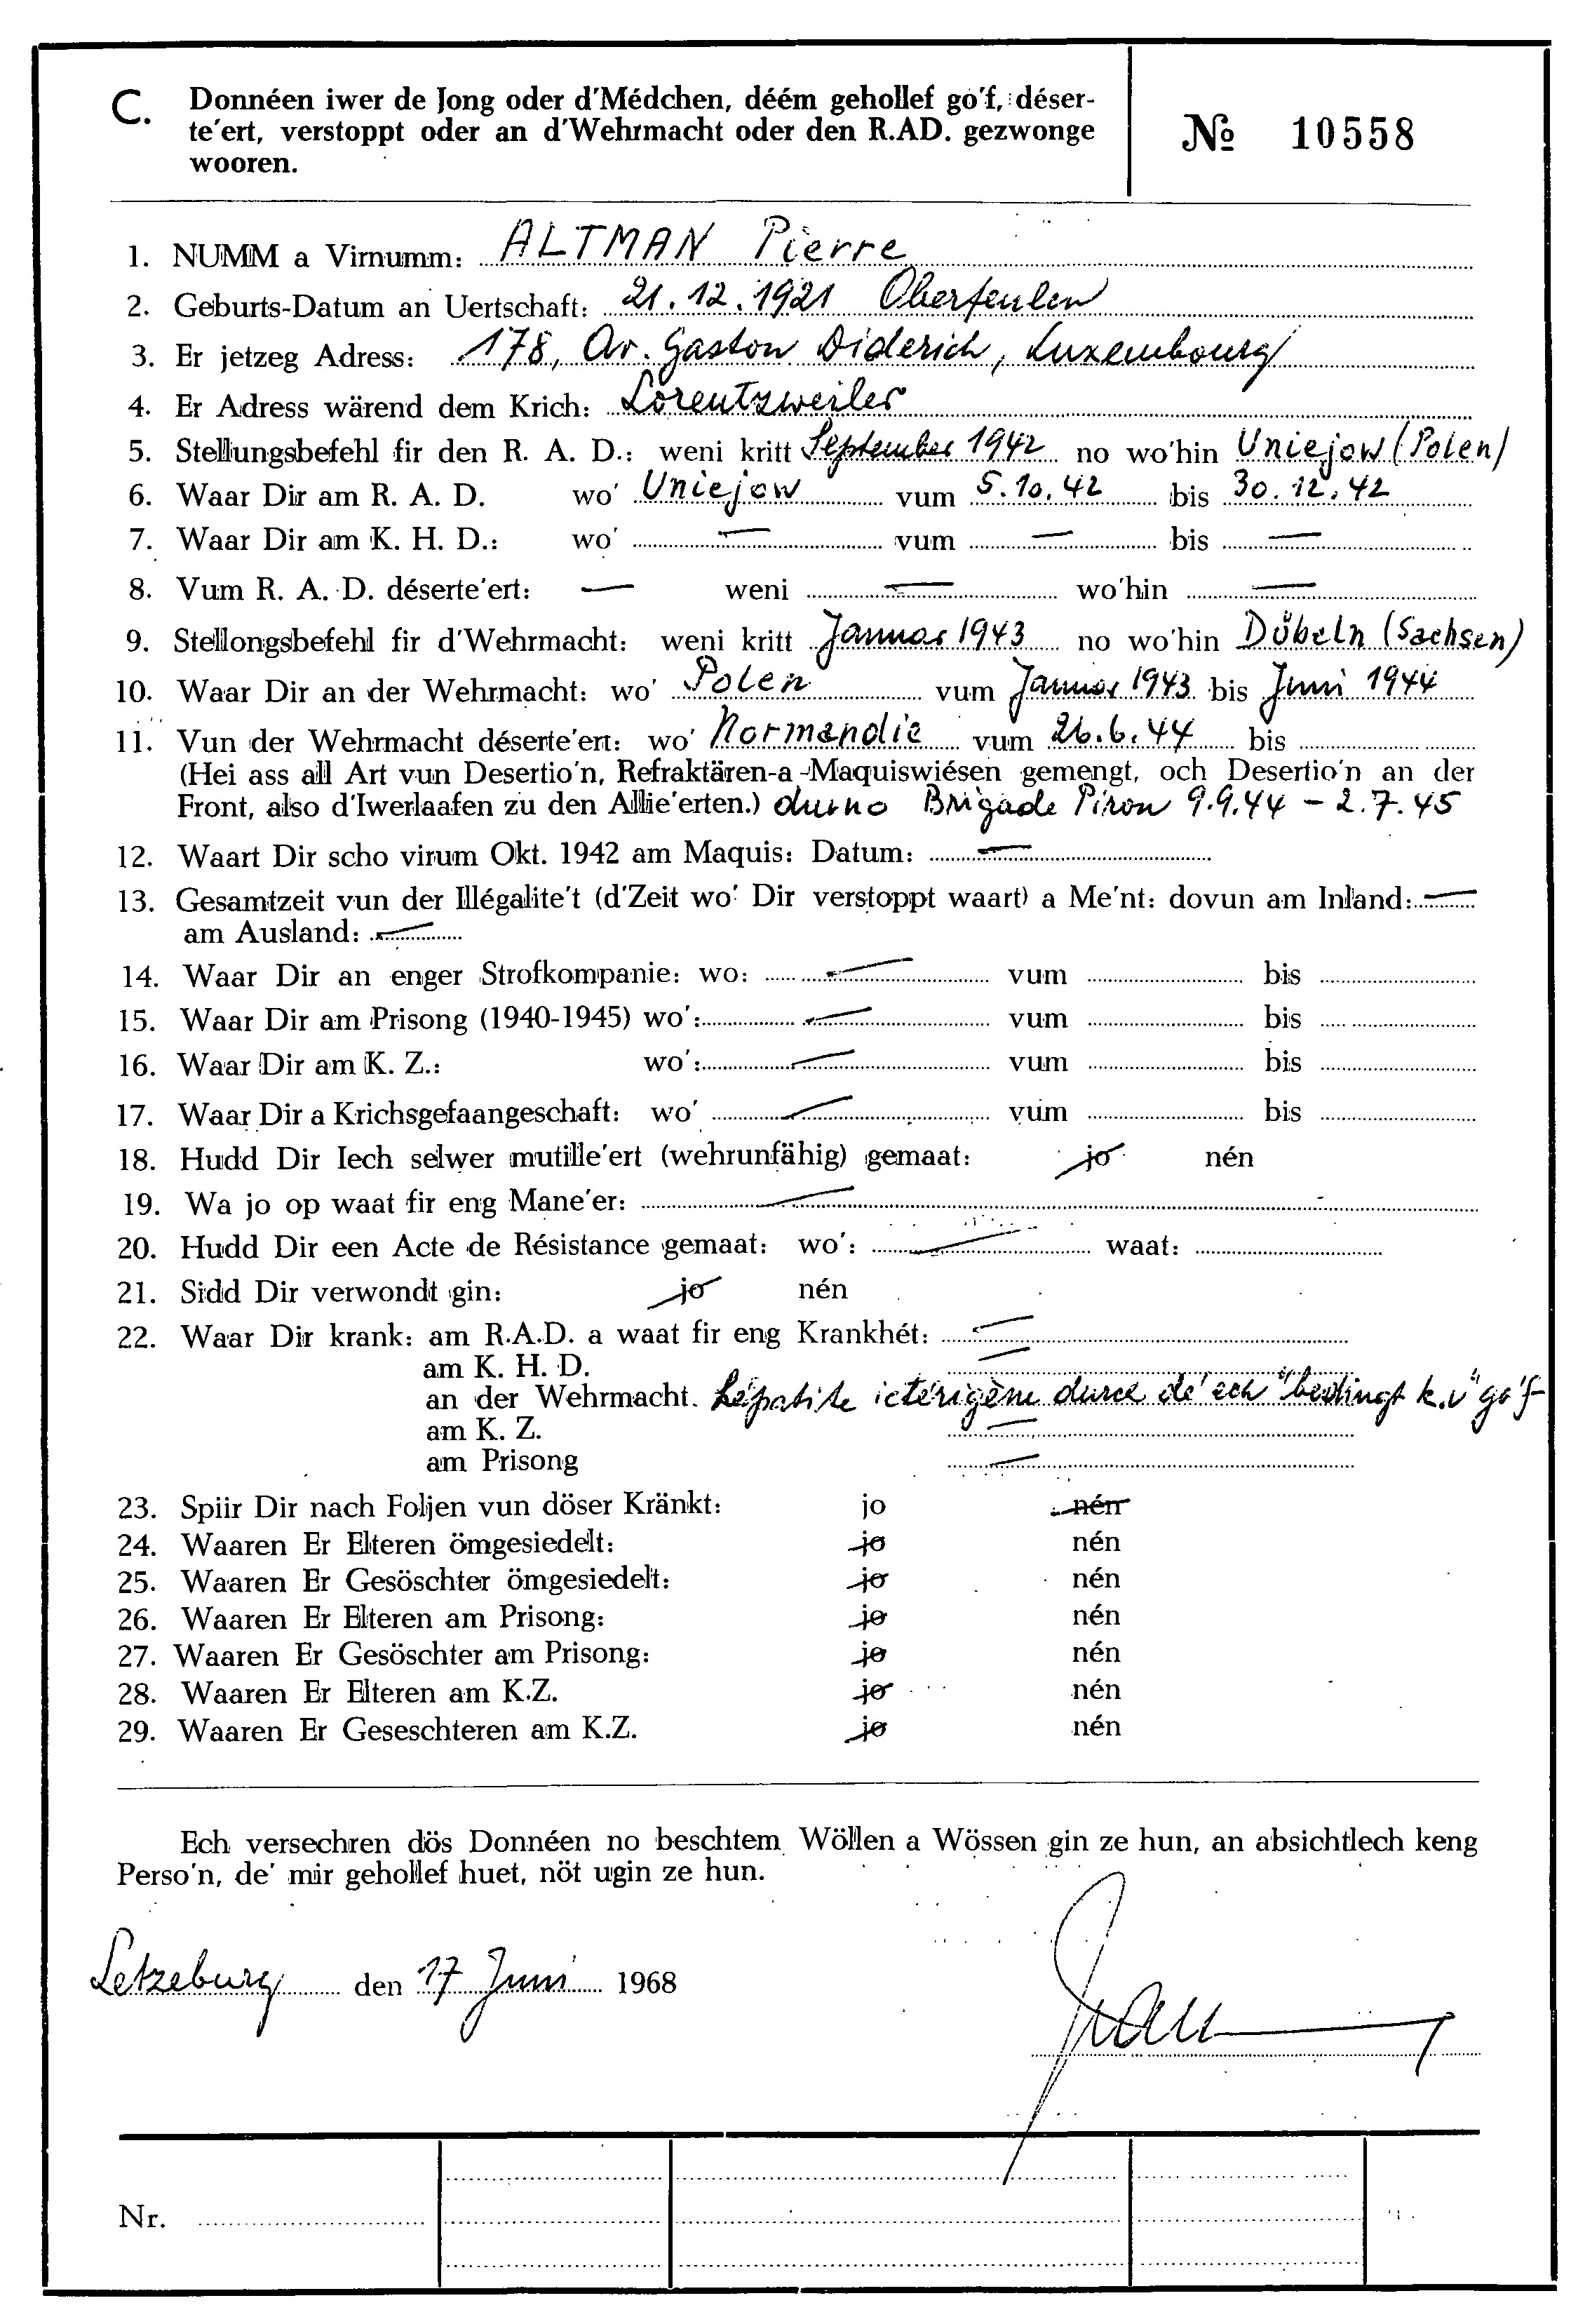 C. Donnéen iwer de Jong oder d'Médchen, déém gehollef go'f, déser-
te'ert, verstoppt oder an d'Wehrmacht oder den R.AD. gezwonge
wooren.
№ 10558
1. NUMM a Virnumm: ALTMAN Pierre
2. Geburts-Datum an Uertschaft: 21.12.1921 Oberfeulen
3. Er jetzeg Adress: 178, Av. Gaston Diderich, Luxembourg
4. Er Adress wärend dem Krich: Lorentzweiler
5. Stellungsbefehl fir den R. A. D.: weni kritt September 1942 no wo'hin Uniejow (Polen)
6. Waar Dir am R. A. D. wo' Uniejow vum 5.10.42 bis 30.12.42
7. Waar Dir am K. H. D.: wo' — vum — bis —
8. Vum R. A. D. déserte'ert: — weni — wo'hin —
9. Stellongsbefehl fir d'Wehrmacht: weni kritt Januar 1943 no wo'hin Döbeln (Sachsen)
10. Waar Dir an der Wehrmacht: wo' Polen vum Januar 1943 bis Juni 1944
11. Vun der Wehrmacht déserte'ert: wo' Normandie vum 26.6.44 bis
(Hei ass all Art vun Desertio'n, Refraktären-a-Maquiswiésen gemengt, och Desertio'n an der
Front, also d'Iwerlaafen zu den Allie'erten.) durno Brigade Piron 9.9.44 – 2.7.45
12. Waart Dir scho virum Okt. 1942 am Maquis: Datum: —
13. Gesamtzeit vun der Illégalite't (d'Zeit wo' Dir verstoppt waart) a Me'nt: dovun am Inland: —
am Ausland: —
14. Waar Dir an enger Strofkompanie: wo: — vum bis
15. Waar Dir am Prisong (1940-1945) wo': — vum bis
16. Waar Dir am K. Z.: wo': — vum bis
17. Waar Dir a Krichsgefaangeschaft: wo' — vum bis
18. Hudd Dir Iech selwer mutille'ert (wehrunfähig) gemaat: jo nén
19. Wa jo op waat fir eng Mane'er: —
20. Hudd Dir een Acte de Résistance gemaat: wo': — waat:
21. Sidd Dir verwondt gin: jo nén
22. Waar Dir krank: am R.A.D. a waat fir eng Krankhét: —
am K. H. D. —
an der Wehrmacht. Hépatite ictérigène durch de' ech "bedingt k.v" go'f
am K. Z. —
am Prisong —
23. Spiir Dir nach Foljen vun döser Kränkt: jo nén
24. Waaren Er Elteren ömgesiedelt: jo nén
25. Waaren Er Gesöschter ömgesiedelt: jo nén
26. Waaren Er Elteren am Prisong: jo nén
27. Waaren Er Gesöschter am Prisong: jo nén
28. Waaren Er Elteren am K.Z. jo nén
29. Waaren Er Geseschteren am K.Z. jo nén
Ech versechren dös Donnéen no beschtem Wöllen a Wössen gin ze hun, an absichtlech keng
Perso'n, de' mir gehollef huet, nöt ugin ze hun.
Letzeburg den 17 Juni 1968
Nr.